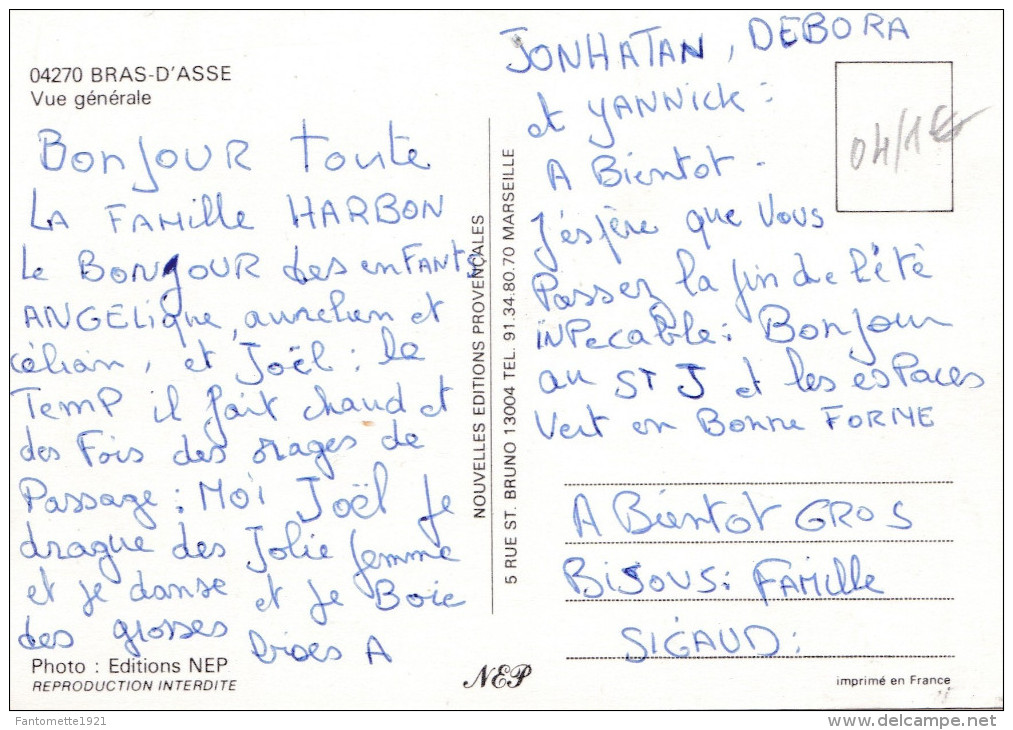 04270 BRAS-D'ASSE
Vue générale
Bonjour toute
LA FAMille HARBON
le BONJOUR des enFANTs
ANGELique, aurelien et
célian, et Joël : le
Temp il fait chaud et
des Fois des orages de
Passage : Moi Joël je
drague des Jolie femme
et je danse et je Boie
des grosses Bières A
Photo : Editions NEP
REPRODUCTION INTERDITE
NOUVELLES EDITIONS PROVENÇALES
5 RUE ST. BRUNO 13004 TEL. 91.34.80.70 MARSEILLE
NEP
JONHATAN, DEBORA
et YANNick :
A Bientot -
J'éspère que Vous
Passez la fin de l'été
iNPecable : Bonjour
au ST J et les esPaces
Vert en Bonne FORME
A Bientot GROS
BISOUS : FAMille
SIGAUD :
04/1€
imprimé en France
Fantomette1921
delcampe.net